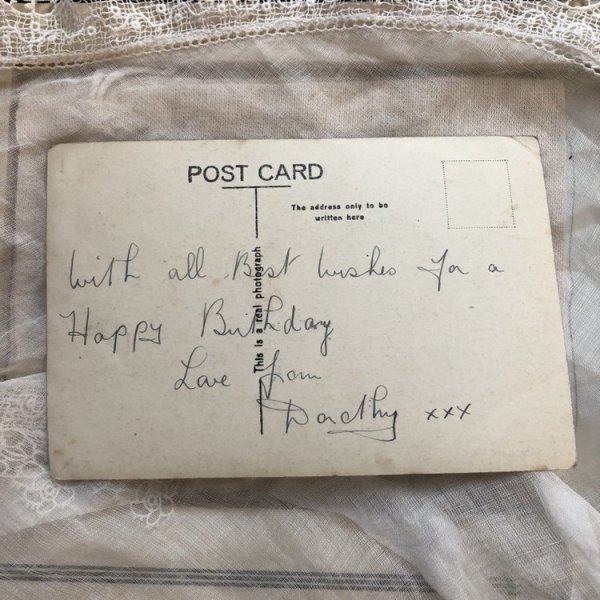 POST CARD
The address only to be
written here
This is a real photograph
With all Best Wishes for a
Happy Birthday
Love from
Dorothy xxx